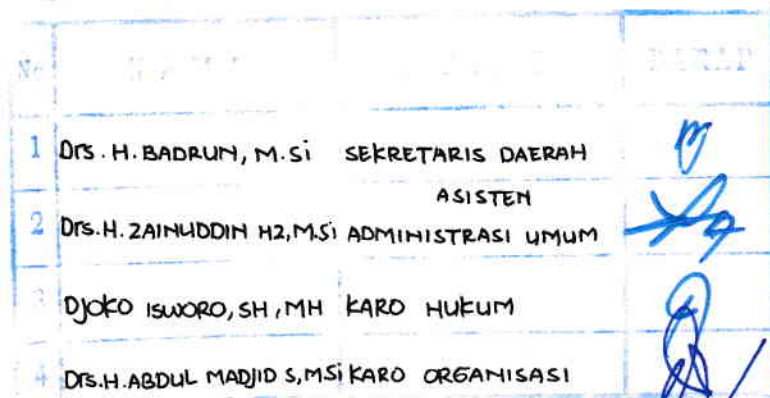 No
1 Drs. H. BADRUN, M.Si SEKRETARIS DAERAH
2 Drs. H. ZAINUDDIN HZ, M.Si ASISTEN
ADMINISTRASI UMUM
3 DJOKO ISWORO, SH, MH KARO HUKUM
4 Drs. H. ABDUL MADJID S, MSi KARO ORGANISASI